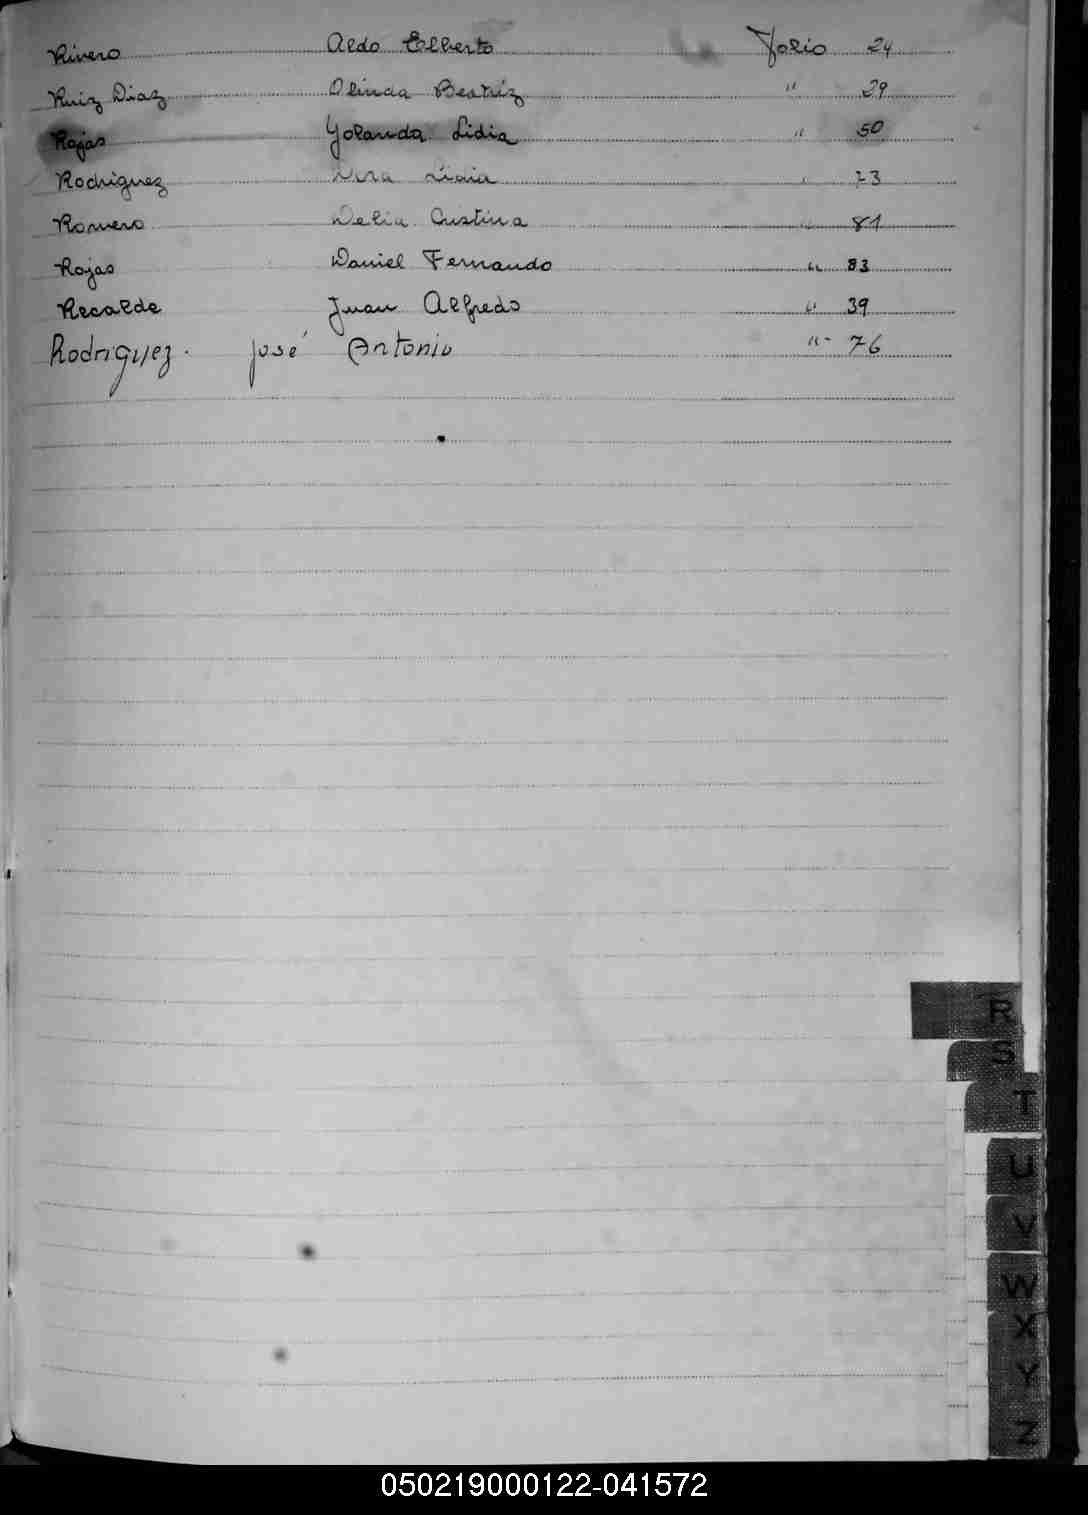 Rivero Aldo Elberto Folio 24
Ruiz Diaz Olinda Beatriz " 29
Rojas Yolanda Lidia " 50
Rodriguez Lidia " 73
Romero Delia Cristina " 81
Rojas Daniel Fernando " 83
Recalde Juan Alfredo " 39
Rodriguez. José Antonio "- 76
R
S
T
U
V
W
X
Y
Z
050219000122-041572